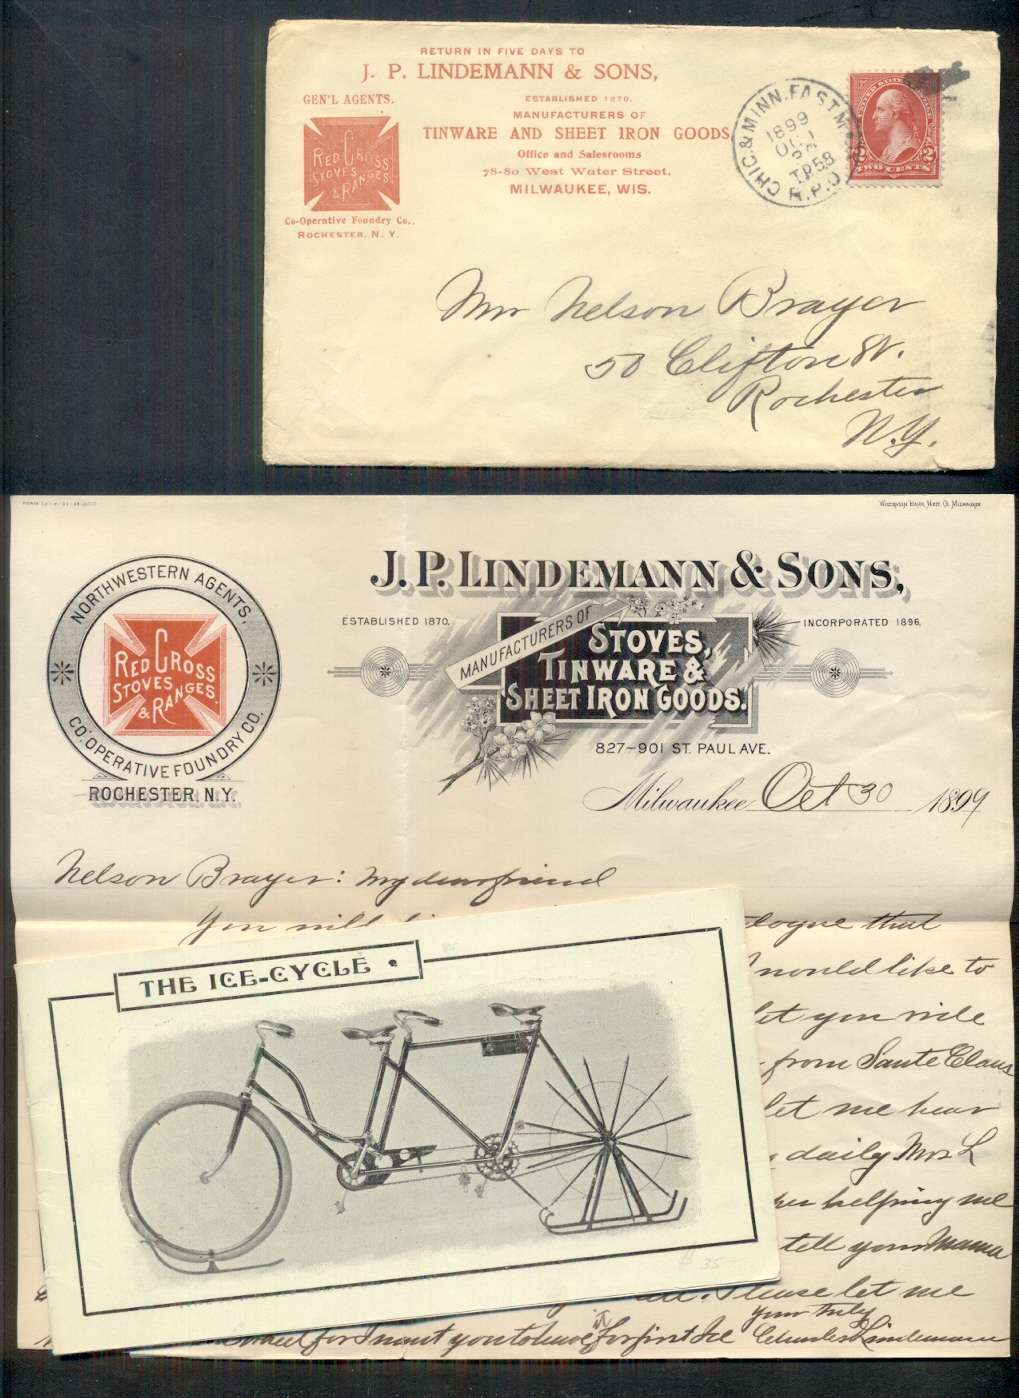 RETURN IN FIVE DAYS TO
J. P. LINDEMANN & SONS,
GEN'L AGENTS.
RED CROSS
STOVES
& RANGES
Co-Operative Foundry Co.,
ROCHESTER, N. Y.
ESTABLISHED 1870.
MANUFACTURERS OF
TINWARE AND SHEET IRON GOODS
Office and Salesrooms
78-80 West Water Street,
MILWAUKEE, WIS.
CHIC. & MINN. FAST M
1899
TR58
R.P.O.
2 2
TWO CENTS
Mr Nelson Brayer
50 Clifton St.
Rochester
N.Y.
Wisconsin Bank Note Co. Milwaukee
NORTHWESTERN AGENTS,
RED CROSS
STOVES
& RANGES.
CO-OPERATIVE FOUNDRY CO.
ROCHESTER, N.Y.
J. P. LINDEMANN & SONS,
ESTABLISHED 1870.
INCORPORATED 1896.
MANUFACTURERS OF
STOVES,
TINWARE &
SHEET IRON GOODS.
827-901 ST. PAUL AVE.
Milwaukee Oct 30 1899
Nelson Brayer: My dear friend
You will
that
would like to
let you ride
from Sante Claus
let me hear
daily Mrs L
helping me
tell your Mama
Please let me
for I want you to have it for first Ice
Yours truly
Charles Lindemann
THE ICE-CYCLE
35-